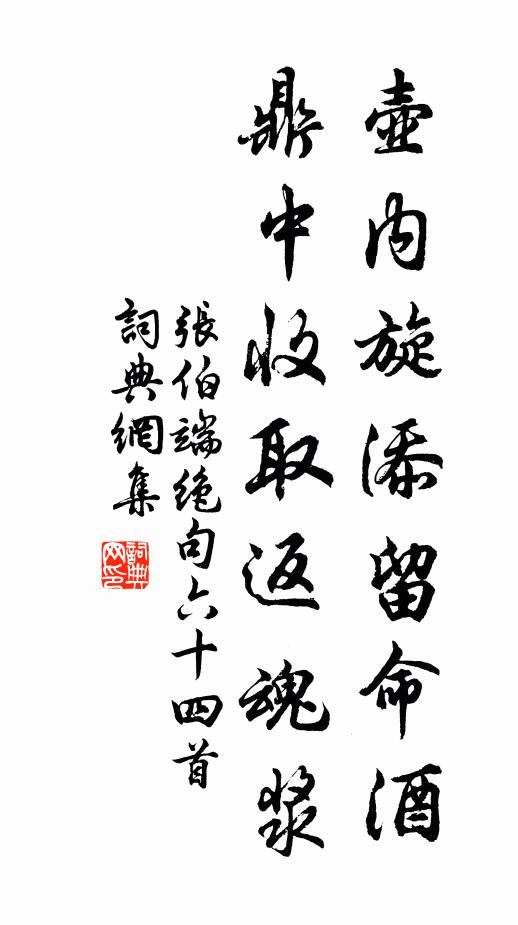 壺内旋添留命酒
鼎中收取返魂漿
張伯端絶句六十四首
詞典網集
詞典
网印